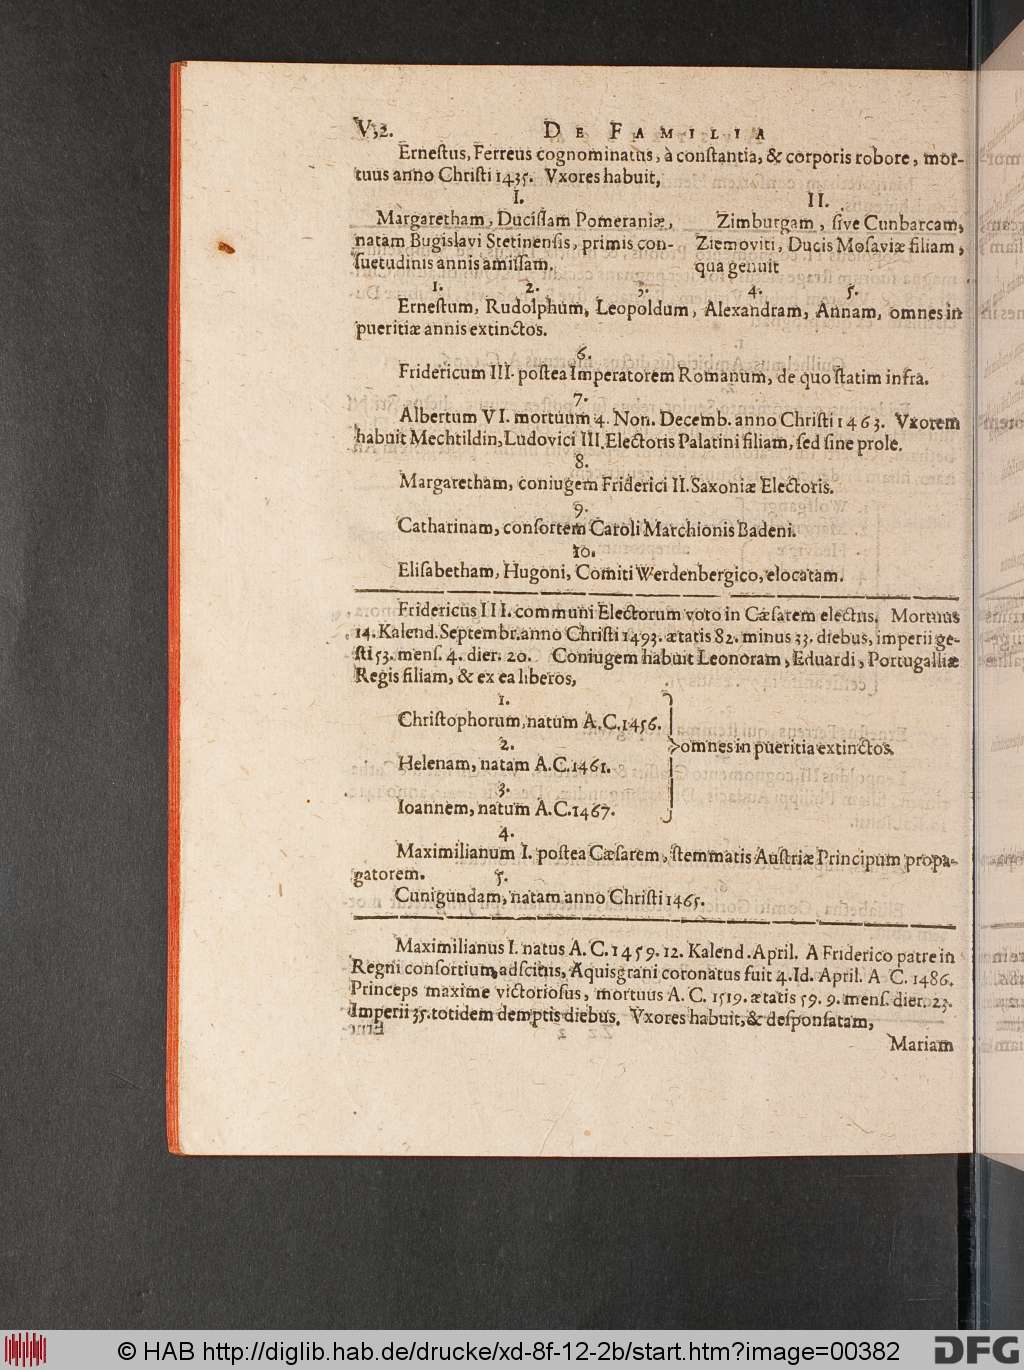 V,2. DE FAMILIA
Ernestus, Ferreus cognominatus, à constantia, & corporis robore, mor-
tuus anno Christi 1435. Vxores habuit,
I.
Margaretham, Ducissam Pomeraniæ,
natam Bugislavi Stetinensis, primis con-
suetudinis annis amissam.
II.
Zimburgam, sive Cunbarcam,
Ziemoviti, Ducis Mosaviæ filiam,
qua genuit
1. 2. 3. 4. 5.
Ernestum, Rudolphum, Leopoldum, Alexandram, Annam, omnes in
pueritiæ annis extinctos.
6.
Fridericum III. postea Imperatorem Romanum, de quo statim infra.
7.
Albertum VI. mortuum 4. Non. Decemb. anno Christi 1463. Vxorem
habuit Mechtildin, Ludovici III. Electoris Palatini filiam, sed sine prole.
8.
Margaretham, coniugem Friderici II. Saxoniæ Electoris.
9.
Catharinam, consortem Caroli Marchionis Badeni.
10.
Elisabetham, Hugoni, Comiti Werdenbergico, elocatam.
Fridericus III. communi Electorum voto in Cæsarem electus. Mortuus
14. Kalend. Septembr. anno Christi 1493. ætatis 82. minus 33. diebus, imperii ge-
sti 53. mens. 4. dier. 20. Coniugem habuit Leonoram, Eduardi, Portugalliæ
Regis filiam, & ex ea liberos,
1.
Christophorum, natum A.C. 1456.
2.
Helenam, natam A.C. 1461.
3.
Ioannem, natum A.C. 1467.
omnes in pueritia extinctos.
4.
Maximilianum I. postea Cæsarem, stemmatis Austriæ Principum propa-
gatorem.
5.
Cunigundam, natam anno Christi 1465.
Maximilianus I. natus A.C. 1459. 12. Kalend. April. A Friderico patre in
Regni consortium adscitus, Aquisgrani coronatus fuit 4. Id. April. A C. 1486.
Princeps maxime victoriosus, mortuus A. C. 1519. ætatis 59. 9. mens. dier. 23.
Imperii 35. totidem demptis diebus. Vxores habuit, & desponsatam,
Mariam
© HAB http://diglib.hab.de/drucke/xd-8f-12-2b/start.htm?image=00382
DFG